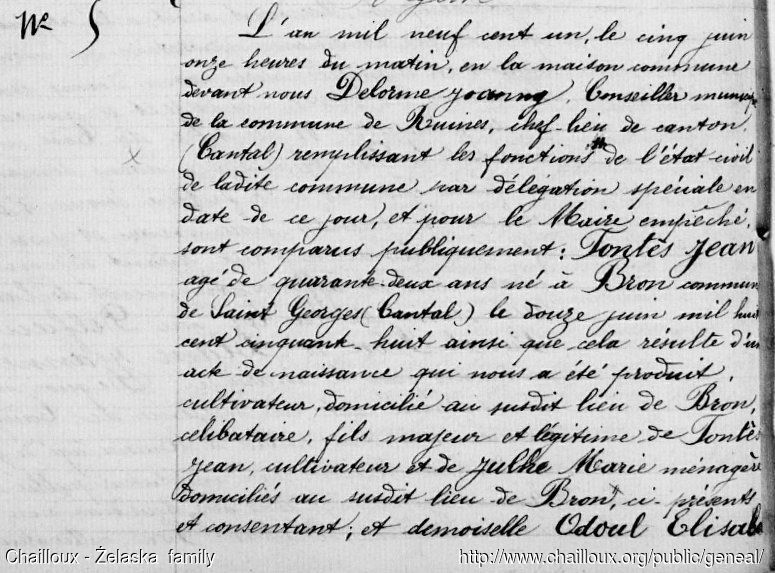 Nº 5
L'an mil neuf cent un, le cinq juin
onze heures du matin, en la maison commune
devant nous Delorme Joanny, Conseiller municip
de la commune de Ruines, chef-lieu de canton,
(Cantal) remplissant les fonctions de l'état civil
de ladite commune par délégation spéciale en
date de ce jour, et pour le Maire empêché,
sont comparus publiquement : Tontès Jean
agé de quarante-deux ans né à Bron commun
de Saint Georges (Cantal) le douze juin mil huit
cent cinquante-huit ainsi que cela résulte d'un
acte de naissance qui nous a été produit,
cultivateur, domicilié au susdit lieu de Bron,
célibataire, fils majeur et légitime de Tontès
Jean, cultivateur et de Julhe Marie ménagère
domiciliés au susdit lieu de Bron, ci-présents
et consentant ; et demoiselle Odoul Elisab
Chailloux - Želaska family
http://www.chailloux.org/public/geneal/